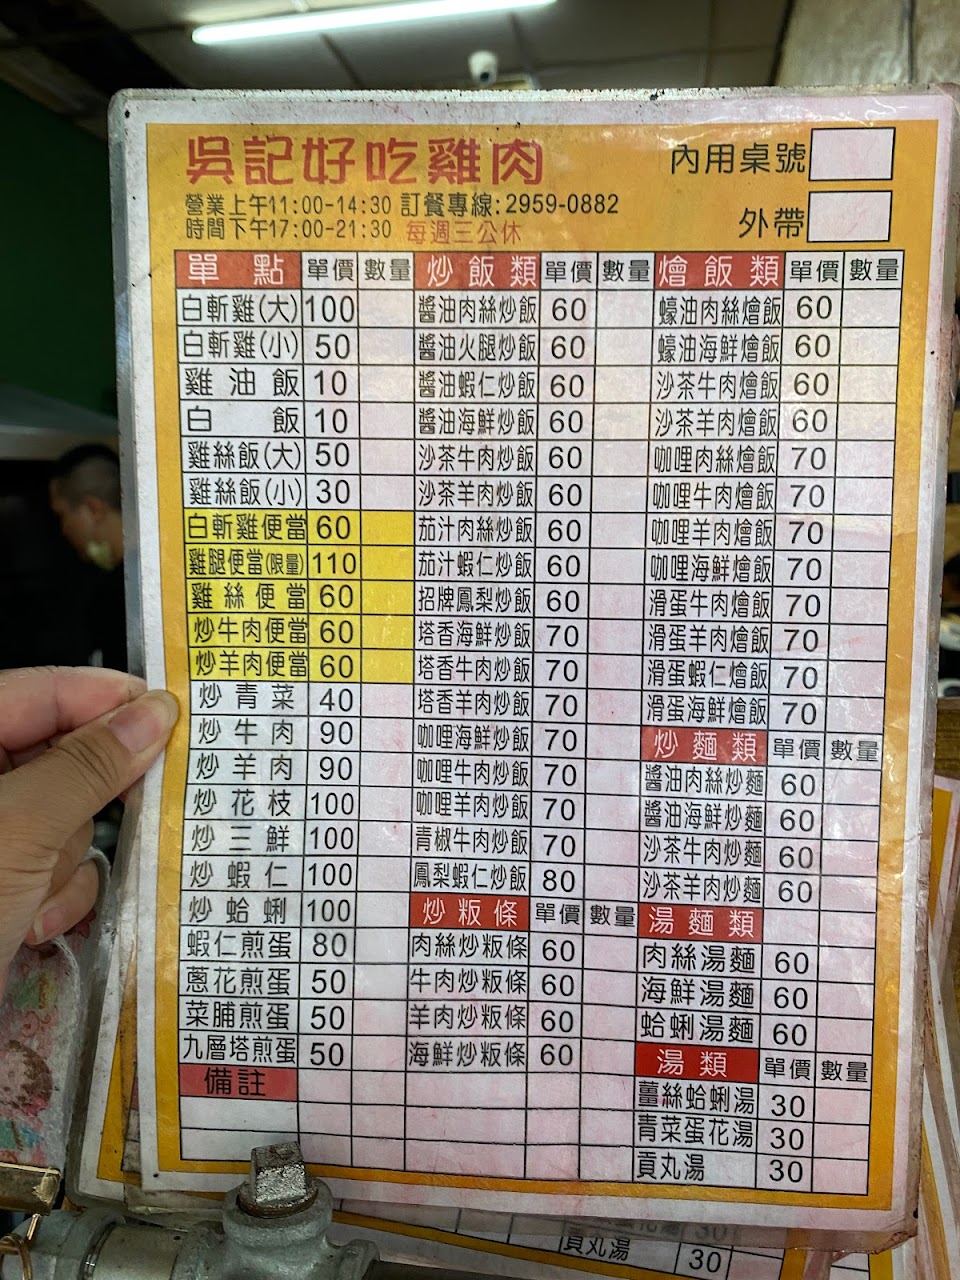 吳記好吃雞肉
內用桌號
營業上午11:00-14:30 訂餐專線:2959-0882
時間下午17:00-21:30 每週三公休
外帶
單點 單價 數量
白斬雞(大) 100
白斬雞(小) 50
雞油飯 10
白飯 10
雞絲飯(大) 50
雞絲飯(小) 30
白斬雞便當 60
雞腿便當(限量) 110
雞絲便當 60
炒牛肉便當 60
炒羊肉便當 60
炒青菜 40
炒牛肉 90
炒羊肉 90
炒花枝 100
炒三鮮 100
炒蝦仁 100
炒蛤蜊 100
蝦仁煎蛋 80
蔥花煎蛋 50
菜脯煎蛋 50
九層塔煎蛋 50
備註
炒飯類 單價 數量
醬油肉絲炒飯 60
醬油火腿炒飯 60
醬油蝦仁炒飯 60
醬油海鮮炒飯 60
沙茶牛肉炒飯 60
沙茶羊肉炒飯 60
茄汁肉絲炒飯 60
茄汁蝦仁炒飯 60
招牌鳳梨炒飯 60
塔香海鮮炒飯 70
塔香牛肉炒飯 70
塔香羊肉炒飯 70
咖哩海鮮炒飯 70
咖哩牛肉炒飯 70
咖哩羊肉炒飯 70
青椒牛肉炒飯 70
鳳梨蝦仁炒飯 80
炒粄條 單價 數量
肉絲炒粄條 60
牛肉炒粄條 60
羊肉炒粄條 60
海鮮炒粄條 60
燴飯類 單價 數量
蠔油肉絲燴飯 60
蠔油海鮮燴飯 60
沙茶牛肉燴飯 60
沙茶羊肉燴飯 60
咖哩肉絲燴飯 70
咖哩牛肉燴飯 70
咖哩羊肉燴飯 70
咖哩海鮮燴飯 70
滑蛋牛肉燴飯 70
滑蛋羊肉燴飯 70
滑蛋蝦仁燴飯 70
滑蛋海鮮燴飯 70
炒麵類 單價 數量
醬油肉絲炒麵 60
醬油海鮮炒麵 60
沙茶牛肉炒麵 60
沙茶羊肉炒麵 60
湯麵類
肉絲湯麵 60
海鮮湯麵 60
蛤蜊湯麵 60
湯類 單價 數量
薑絲蛤蜊湯 30
青菜蛋花湯 30
貢丸湯 30
貢丸湯 30